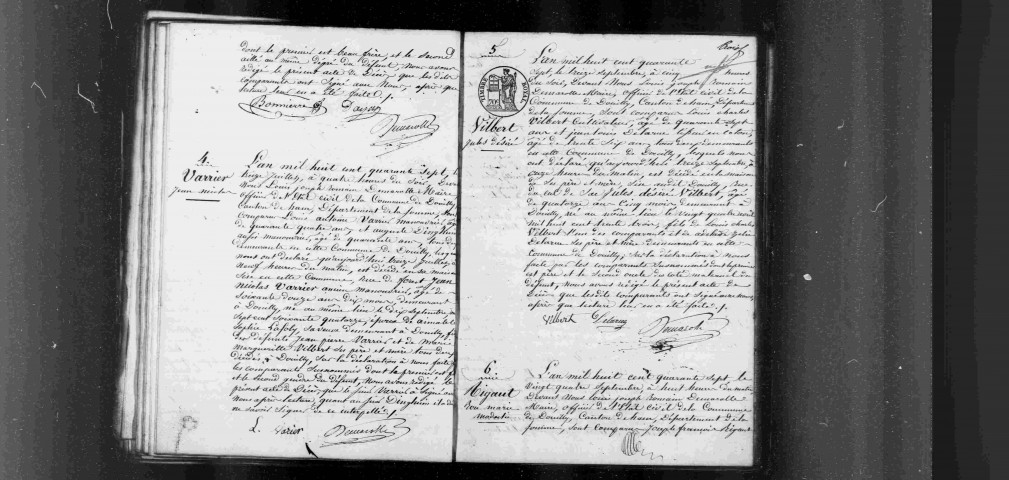 dont le premier est beau frère et le second
allié au même dégré du défunt, Nous avons
rédigé le présent acte de Décès que les dits
comparants ont Signé avec Nous, après que
lecture leur en a été faite ./.
Bonnierre Dassy
Demarolle
4
Varrier
L'an mil huit cent quarante Sept, le
treize Juillet, à quatre heures du Soir, Devant
Nous Louis Joseph Romain Demarolle Maire
officier de l'état civil de la Commune de Douilly,
Canton de ham, Département de la Somme, sont
Comparus Louis antoine Varrier manouvrier, âgé
de quarante quatre ans, et auguste
aussi manouvrier, âgé de quarante ans, tous deux
demeurants en cette Commune de Douilly, lesquels
nous ont déclaré qu'aujourd'hui treize Juillet,
Neuf heures du matin, est décédé en sa maison
Sise en cette Commune Rue de Jean
Nicolas Varrier ancien manouvrier, âgé de
Soixante douze ans dix mois, demeurant
à Douilly, né au même lieu le dix Septembre mil
Sept cent Soixante quatorze, époux de
Sophie Lafoly, sa veuve demeurant à Douilly, fils
des défunts Jean pierre Varrier et de Marie
Marguerite Vilbert Ses père et mère tous deux
décédés à Douilly. Sur la déclaration à nous faite par
les comparants Susnommés dont le premier est fils
et le Second gendre du défunt, Nous avons rédigé le
présent acte de Décès, que le Sieur Varrier à Signé avec
Nous après lecture, quant au Sieur il a déclaré
ne savoir Signer de ce interpellé ./.
L. Varier Demarolle
5
Vilbert
jules désiré
TIMBRE ROYAL
L'an mil huit cent quarante
Sept, le treize Septembre, à cinq heures
du Soir, Devant Nous Louis Joseph Romain
Demarolle Maire, officier de l'état Civil de la
Commune de Douilly, Canton de ham, Département
de la Somme, Sont comparus Louis charles
Vilbert Cultivateur, âgé de quarante Sept
ans et
âgé de trente Six ans, tous deux demeurants
en cette Commune de Douilly, lesquels nous
ont déclaré qu'aujourd'hui treize Septembre, à
onze heures du matin, est décédé en la maison
de Ses père et mère, Sise audit Douilly, Rue
Jules désiré Vilbert, âgé
de quatorze ans Cinq mois demeurant à
Douilly, né au même lieu le vingt quatre avril
mil huit cent trente trois, fils de Louis charles
Vilbert l'un des comparants et de
Delarue Ses père et mère demeurants en cette
Commune de Douilly; Sur la déclaration à nous
faite par les comparants Susnommés dont le premier
est père et le Second oncle du coté maternel du
défunt, nous avons rédigé le présent acte de
Décès que lesdits comparants ont Signé avec Nous,
après que lecture leur en a été faite ./.
Vilbert Delarue
Demarolle
6
Rigaut
L'an mil huit cent quarante Sept le
vingt quatre Septembre, à huit heures du matin
Devant Nous Louis Joseph Romain Demarolle
Maire, officier de l'état Civil de la Commune
de Douilly, Canton de ham, Département de la
Somme, sont comparus Joseph françois Rigaut